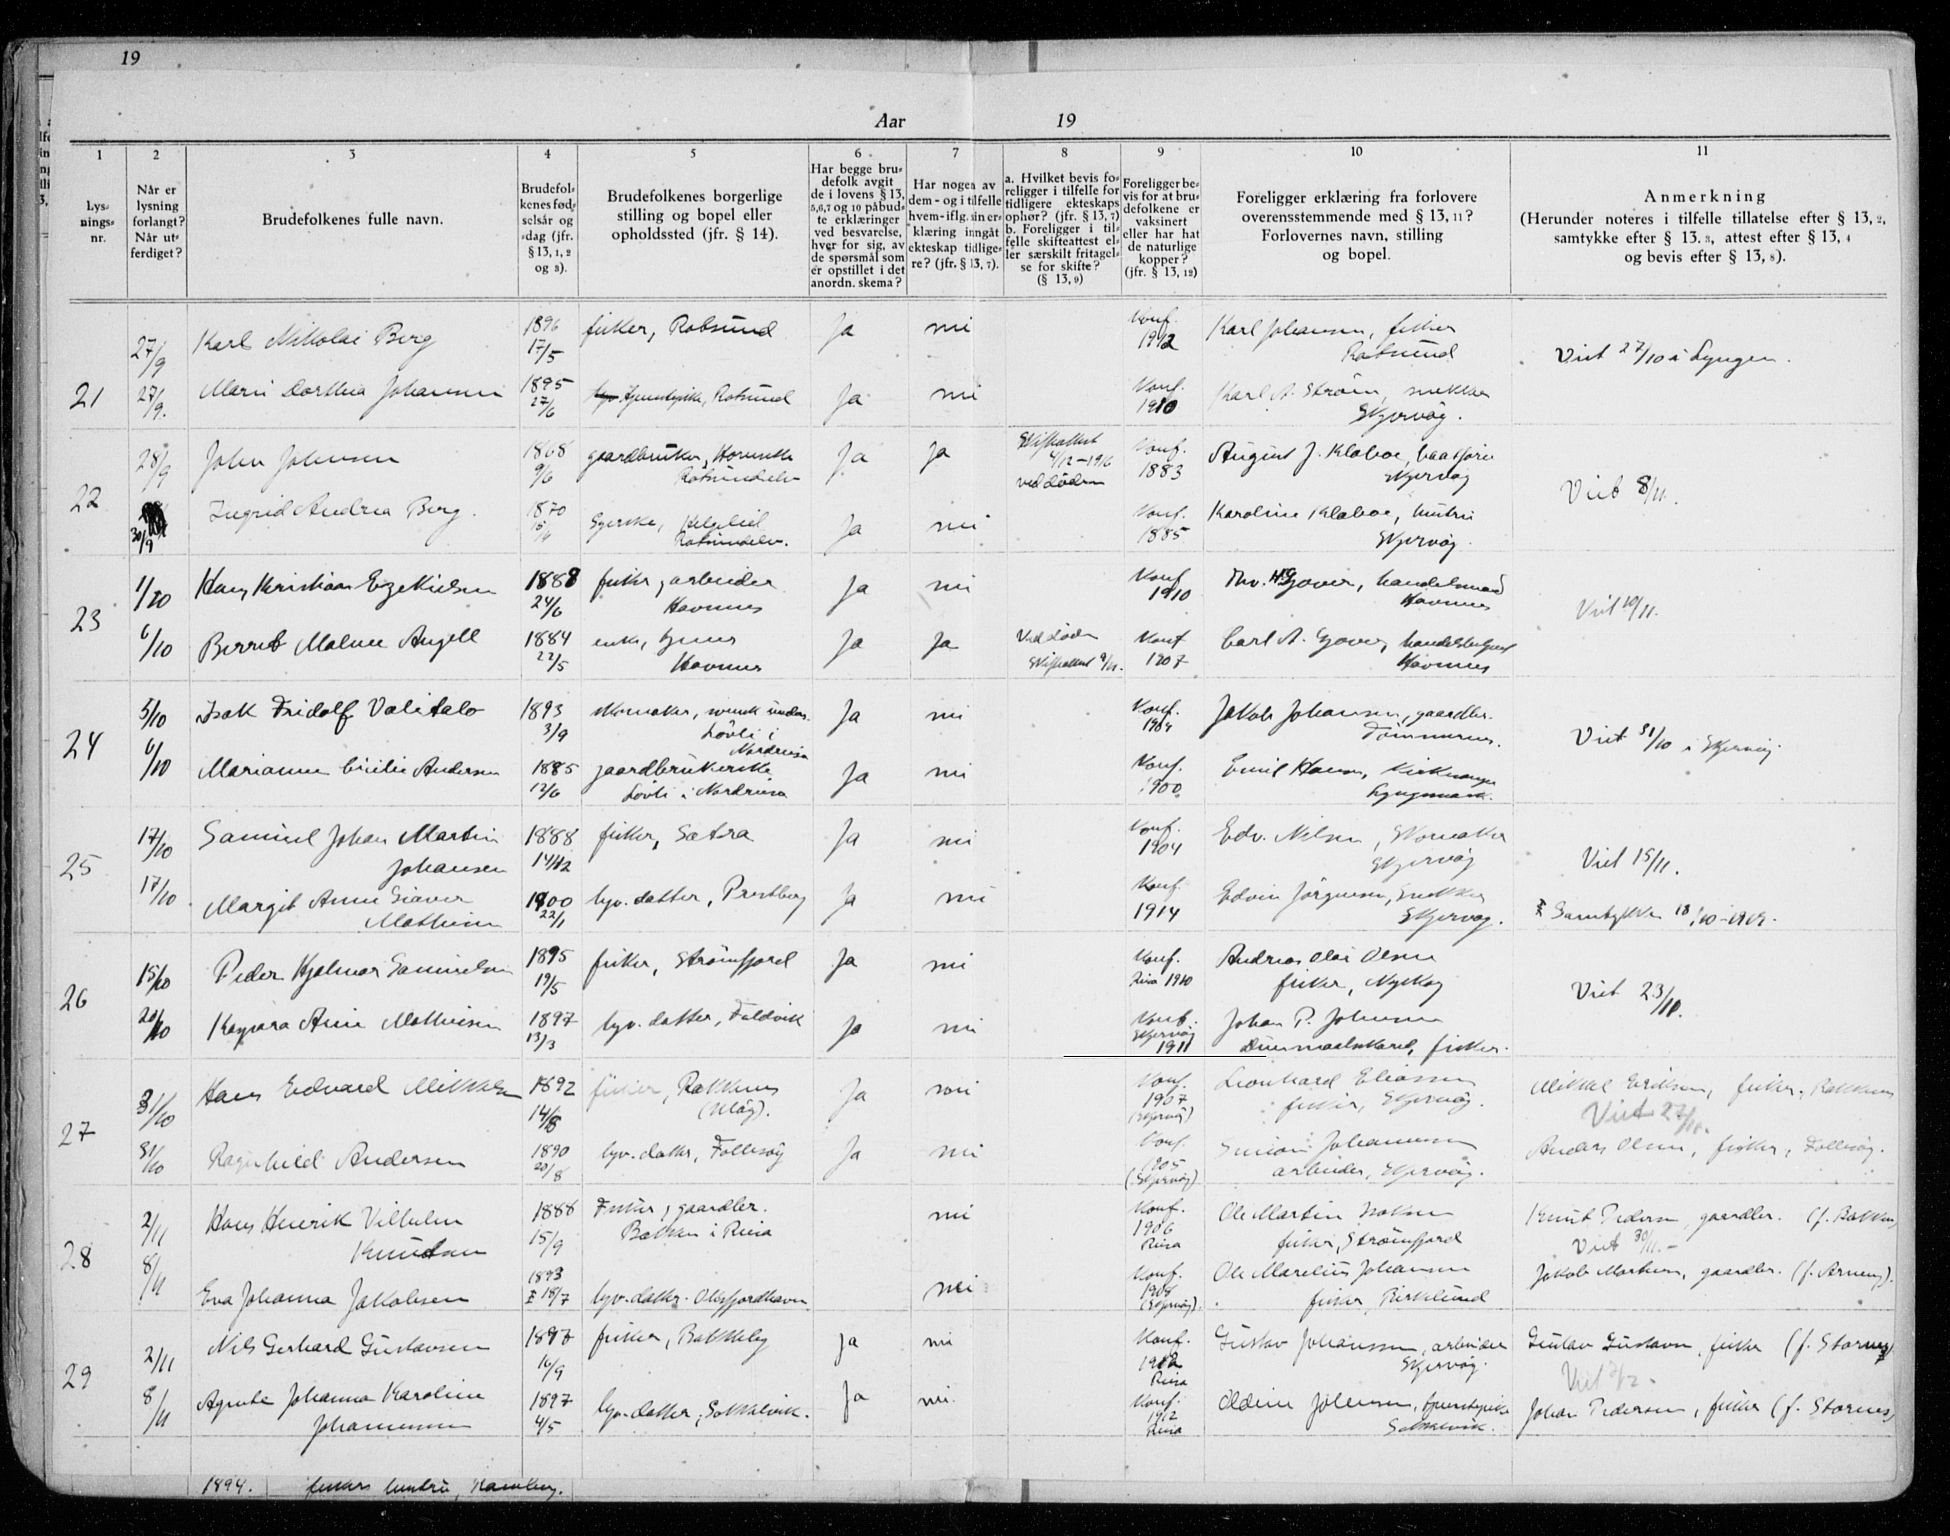 19
Aar 19
1 2 3 4 5 6 7 8 9 10 11
Lys-
nings-
nr.
Når er
lysning
forlangt?
Når ut-
ferdiget?
Brudefolkenes fulle navn.
Brudefol-
kenes fød-
selsår og
-dag (jfr.
§ 13, 1, 2
og 3).
Brudefolkenes borgerlige
stilling og bopel eller
opholdssted (jfr. § 14).
Har begge bru-
defolk avgit
de i lovens § 13,
5,6,7 og 10 påbud-
te erklæringer
ved besvarelse,
hver for sig, av
de spørsmål som
er opstillet i det
anordn. skema?
Har nogen av
dem - og i tilfelle
hvem - iflg. sin er-
klæring inngåt
ekteskap tidlige-
re? (jfr. § 13, 7).
a. Hvilket bevis fo-
religger i tilfelle for
tidligere ekteskaps
ophør? (jfr. § 13, 7)
b. Foreligger i til-
felle skifteattest el-
ler særskilt fritagel-
se for skifte?
(§ 13, 9)
Foreligger be-
vis for at bru-
defolkene er
vaksinert
eller har hat
de naturlige
kopper?
(jfr. § 13, 12)
Foreligger erklæring fra forlovere
overensstemmende med § 13, 11?
Forlovernes navn, stilling
og bopel.
Anmerkning
(Herunder noteres i tilfelle tillatelse efter § 13, 2,
samtykke efter § 13, 3, attest efter § 13, 4
og bevis efter § 13, 8).
21
27/9 Karl Nikolai Berg 1896 17/5 fisker, Rotsund Ja nei Konf. 1912 Karl Johansen, fisker
Rotsund
Viet 27/10 i Lyngen.
27/9. Marie Dorthea Johansen 1895 27/6 tjenestepike, Rotsund Ja nei Konf. 1910 Karl A. Strøm, snekker
Skjervøy.
22
28/9 John Johnsen 1868 9/6 gaardbruker,
Rotsundelv Ja Ja Skifteattest
4/12-1916
ved døden Konf. 1883 August J. Klaboe, baatfører
Skjervøy
Viet 8/11.
30/9 Ingrid Andrea Berg. 1870
Rotsundelv. Ja nei Konf. 1885 Karoline Klaboe, hustru
Skjervøy.
23
1/10 Hans Kristian Ezekielsen 1888 24/6 fisker, arbeider
Havnnes Ja nei Konf 1910 handelsmand
Havnnes
Viet 10/11.
6/10 Berret Malene Angell 1884 22/5 enke,
Havnnes Ja Ja Ved døden
Skifteattest Konf 1907 Carl A. Gjæver,
Havnnes
24
5/10 Isak Fridolf Valitalo 1893 3/9 skomaker, svensk unders.
Løvli i
Nordreisa Ja nei Konf. 1909 Jakob Johansen, gaardbr.
Viet 31/10 i Skjervøy.
6/10 Marianne Cicilie Andersen 1885 12/6 gaardbrukerske
Løvli i Nordreisa Ja nei Konf. 1900 Emil Hansen,
25
17/10 Samuel Johan Martin
Johansen 1888 14/12 fisker, Sætra Ja nei Konf. 1904 Edv. Nilsen, skomaker
Skjervøy
Viet 15/11.
17/10 Margit Anne Giæver
Mathisen 1900 22/1 hjv. datter, Prestberg Ja nei Konf. 1914 Edvin Jørgensen, snekker
Skjervøy.
Samtykke 18/10-1919.
26
15/10 Peder Hjalmar Samuelsen 1895 19/5 fisker, Strømfjord Ja nei Konf. 1910 Andreas Olai Olsen
fisker,
Viet 23/11.
20/10 Kaspara Anne Mathisen 1897 13/3 hjv. datter, Feldvik Ja nei Konf.
Skjervøy
1911 Johan P. Johnsen
fisker.
27
31/10 Hans Edvard Mikkelsen 1892 14/8 fisker, Rakkenes
(Uløy). Ja nei Konf.
1907
(Skjervøy) Leonhard Eliassen
fisker, Skjervøy.
Mikkel Eriksen, fisker, Rakkenes
Viet 27/11.
31/10 Ragnhild Andersen 1890 20/8 hjv. datter, Follesøy Ja nei Konf.
1905
(Skjervøy) Simon Johannesen
arbeider, Skjervøy.
Anders Olsen, fisker, Follesøy.
28
2/11 Hans Henrik Vilhelm
Knudsen 1888 15/9 Fisker, gaardbr.
Bakken i Reisa nei Konf.
1906
Reisa Ole Martin Isaksen
fisker, Strømfjord
Knut Pedersen, gaardbr. (f. Bakken)
Viet 30/11.-
8/11 Eva Johanna Jakobsen 1893 18/7 hjv. datter. Oksfjordhavn nei Konf.
1908
(Skjervøy). Ole Marelius Johansen
fisker, Birkelund
Jakob Mathisen, gaardbr. (f. Arnøy).
29
2/11 Nils Gerhard Gustavsen 1897 16/9 fisker, Bakkeby Ja nei Konf.
1912
Reisa Gustav Johanssen, arbeider
Skjervøy.
Gustav Gustavsen, fisker (f. Stornes)
8/11 Agnete Johanna Karoline
Johannessen 1897 4/5 hjv. datter, Sokkelvik. Ja nei. Konf.
1912
Reisa Oldine Johnsen, tjenestepike
Sokkelvik.
Johan Pedersen, fisker (f. Stornes)
1894. fiskers hustru,